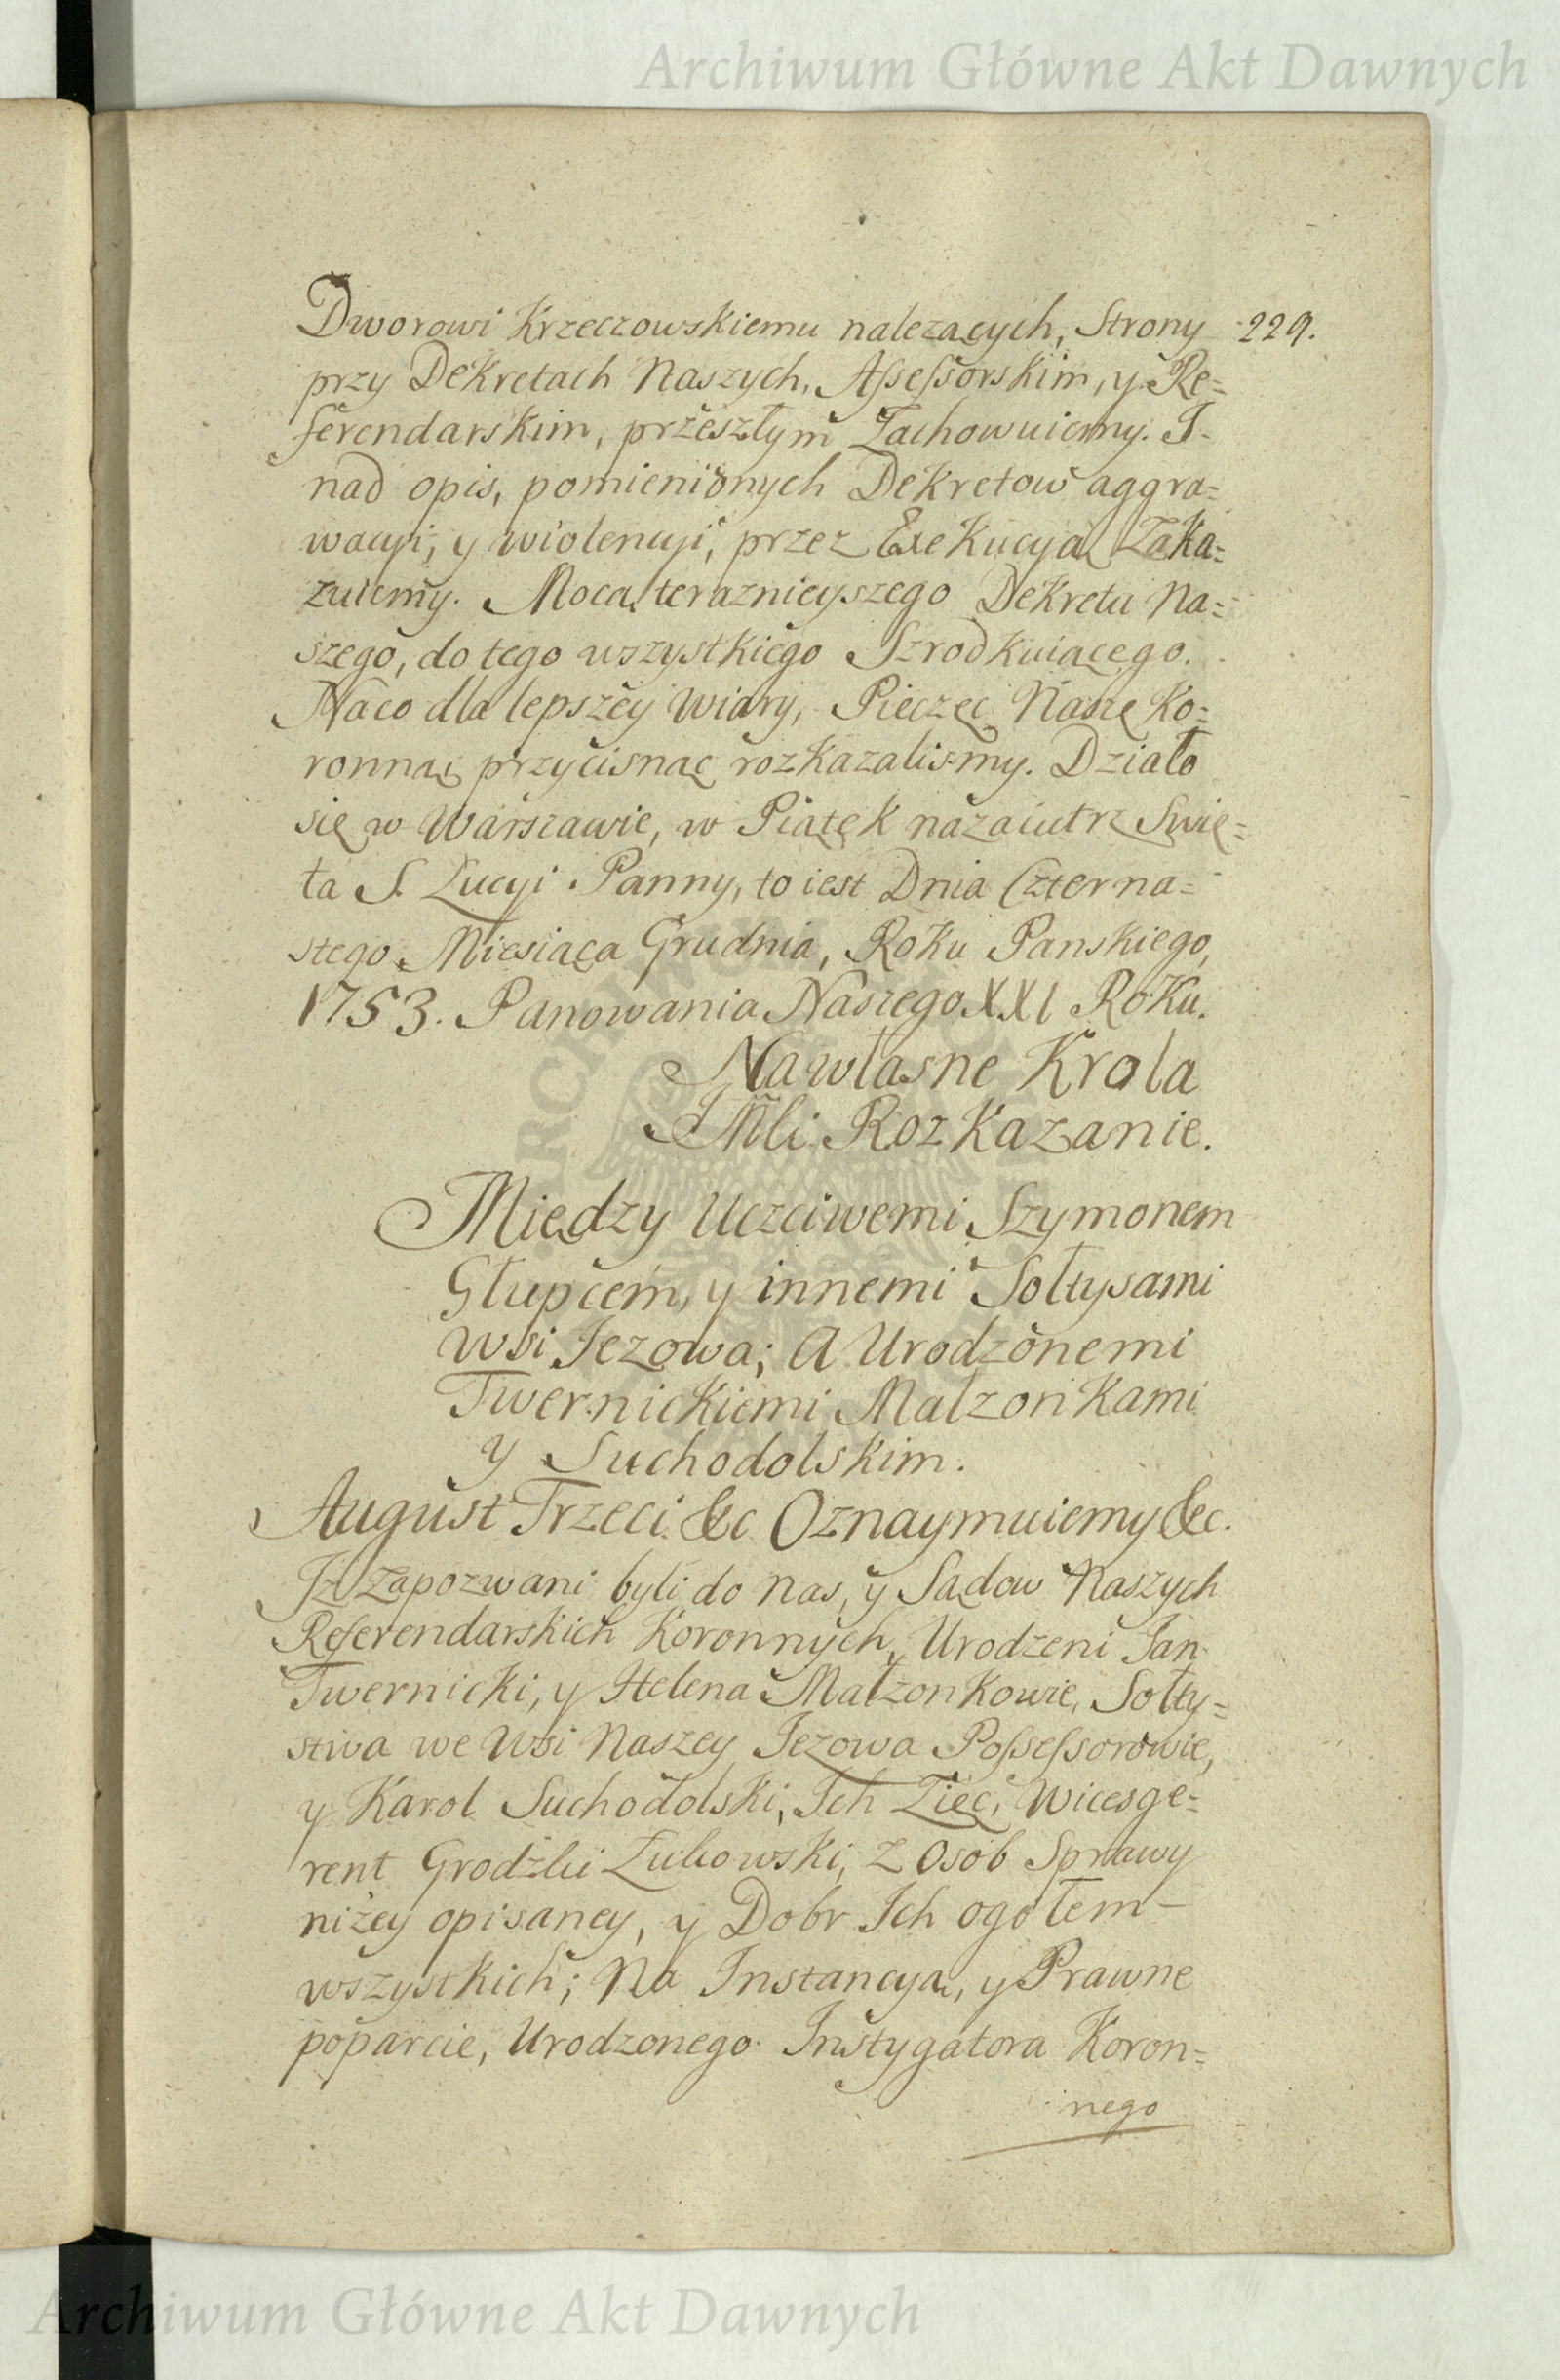 Archiwum Główne Akt Dawnych
Dworowi Krzeczowskiemu nalezących, Strony 229.
przy Dekretach Naszych, Aſseſsorskim, y Re=
ferendarskim, przeszłym Zachowuiemy. I
nad opis, pomienionych Dekretow aggra=
wacyi, y wiolencyi, przez Exekucyą Zaka=
zuiemy. Mocą teraznieyszego Dekretu Na=
szego, do tego wszystkiego Szrodkuiącego.
Naco dla lepszey Wiary, Pieczęc Naszę Ko=
ronną przycisnąc rozkazalismy. Działo
się w Warszawie, w Piątek nazaiutrz Swię=
ta S. Lucyi Panny, to iest Dnia Czterna=
stego Miesiąca Grudnia, Roku Panskiego,
1753. Panowania Naszego XXI Roku.
Nawłasne Krola
JMci Rozkazanie.
Między Uczciwemi Szymonem
Głupcem, y innemi Sołtysami
Wsi Jezowa; A Urodzonemi
Twernickiemi Malzonkami
y Suchodolskim.
August Trzeci &c Oznaymuiemy &c.
Jz Zapozwani byli do Nas, y Sądow Naszych
Referendarskich Koronnych, Urodzeni Jan
Twernicki, y Helena Małzonkowie, Sołty=
stwa we Wsi Naszey Jezowa Poſseſsorowie,
y Karol Suchodolski, Ich Zięc, Wicesge=
rent Grodzki Łukowski, Z Osob Sprawy
nizey opisaney, y Dobr Ich ogołem
wszystkich; Na Instancyą, y Prawne
poparcie, Urodzonego Instygatora Koron=
nego
Archiwum Główne Akt Dawnych